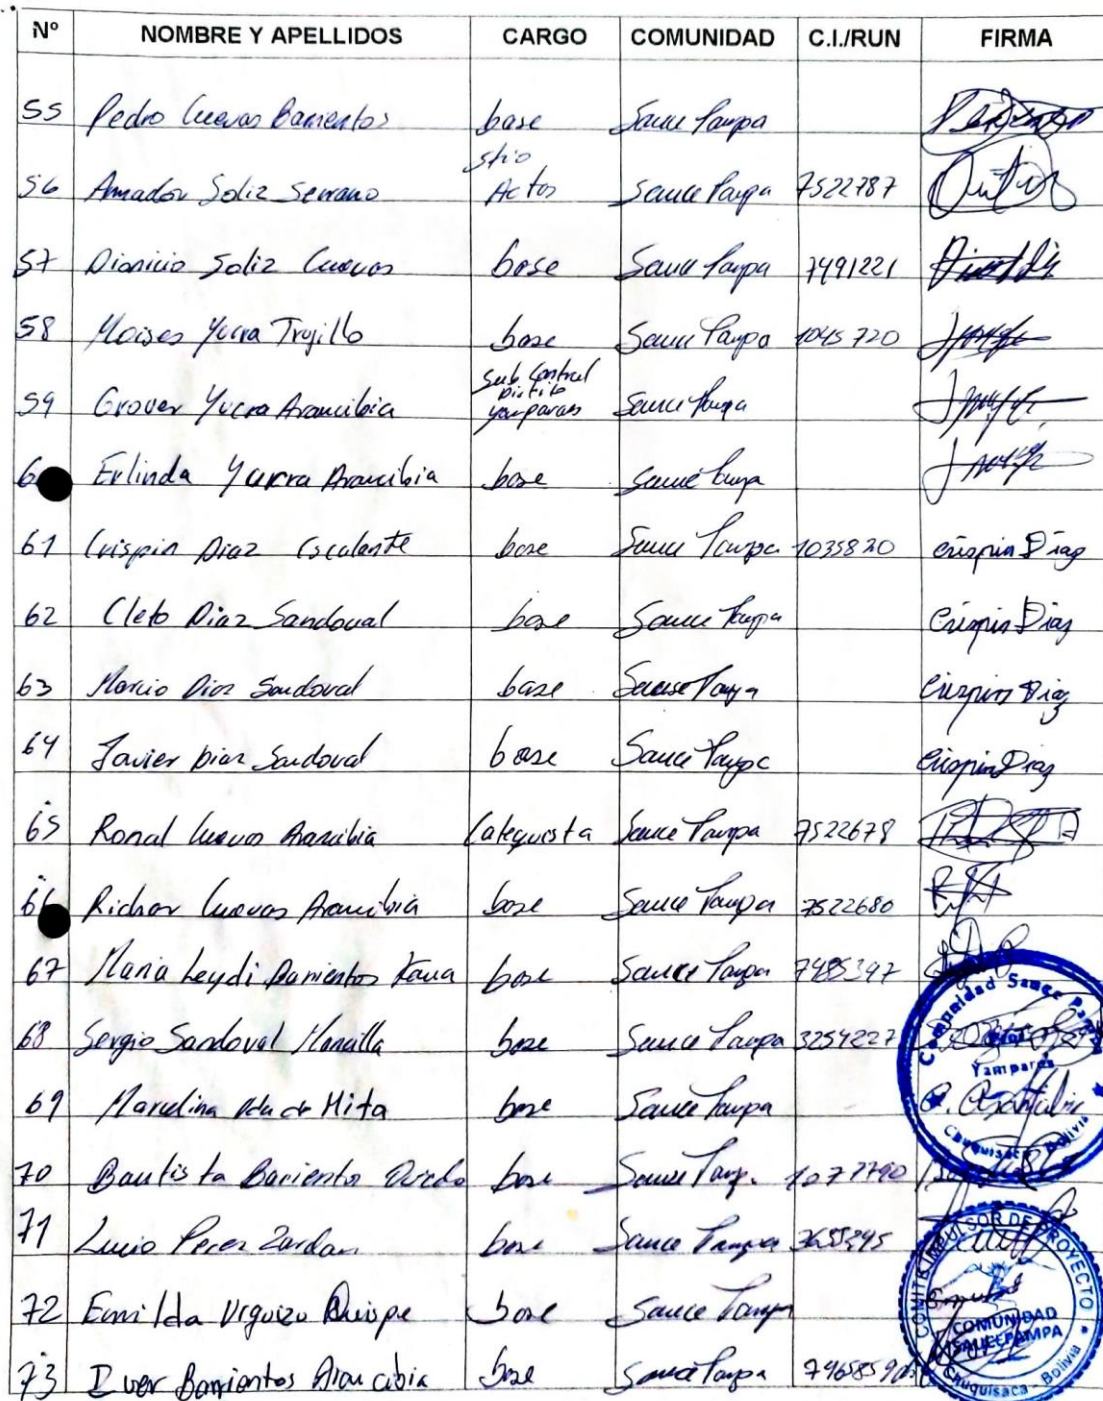 Nº NOMBRE Y APELLIDOS CARGO COMUNIDAD C.I./RUN FIRMA
55 Pedro Cuevas Barrientos base Sauce Pampa
56 Amador Soliz Serrano Stio Actas Sauce Pampa 7522787
57 Dionicio Soliz Cuevas base Sauce Pampa 7491221
58 Moises Yucra Trujillo base Sauce Pampa 1045720
59 Grover Yucra Arancibia Sub Central Distrito yamparaes Sauce Pampa
6 Erlinda Yucra Arancibia base Sauce Pampa
61 Crispin Diaz Escalante base Sauce Pampa 1035820 Crispin Diaz
62 Cleto Diaz Sandoval base Sauce Pampa Crispin Diaz
63 Marcio Diaz Sandoval base Sauce Pampa Crispin Diaz
64 Javier Diaz Sandoval base Sauce Pampa Crispin Diaz
65 Ronal Cuevas Arancibia Catequista Sauce Pampa 7522678
66 Richar Cuevas Arancibia base Sauce Pampa 7522680
67 Maria Leydi Barrientos base Sauce Pampa 7485397
68 Sergio Sandoval Mancilla base Sauce Pampa 3254227
69 Marcelina Vda de Mita base Sauce Pampa
70 Bautista Barrientos base Sauce Pamp.
71 Lucio Perez Zardan base Sauce Pampa
72 Emilda Urguizo Quispe base Sauce Pampa
73 Iver Barrientos Arancibia base Sauce Pampa
Comunidad Sauce Pampa
Yamparaes
Chuquisaca - Bolivia
COMITE IMPULSOR DE PROYECTO
COMUNIDAD
SAUCEPAMPA
Chuquisaca - Bolivia